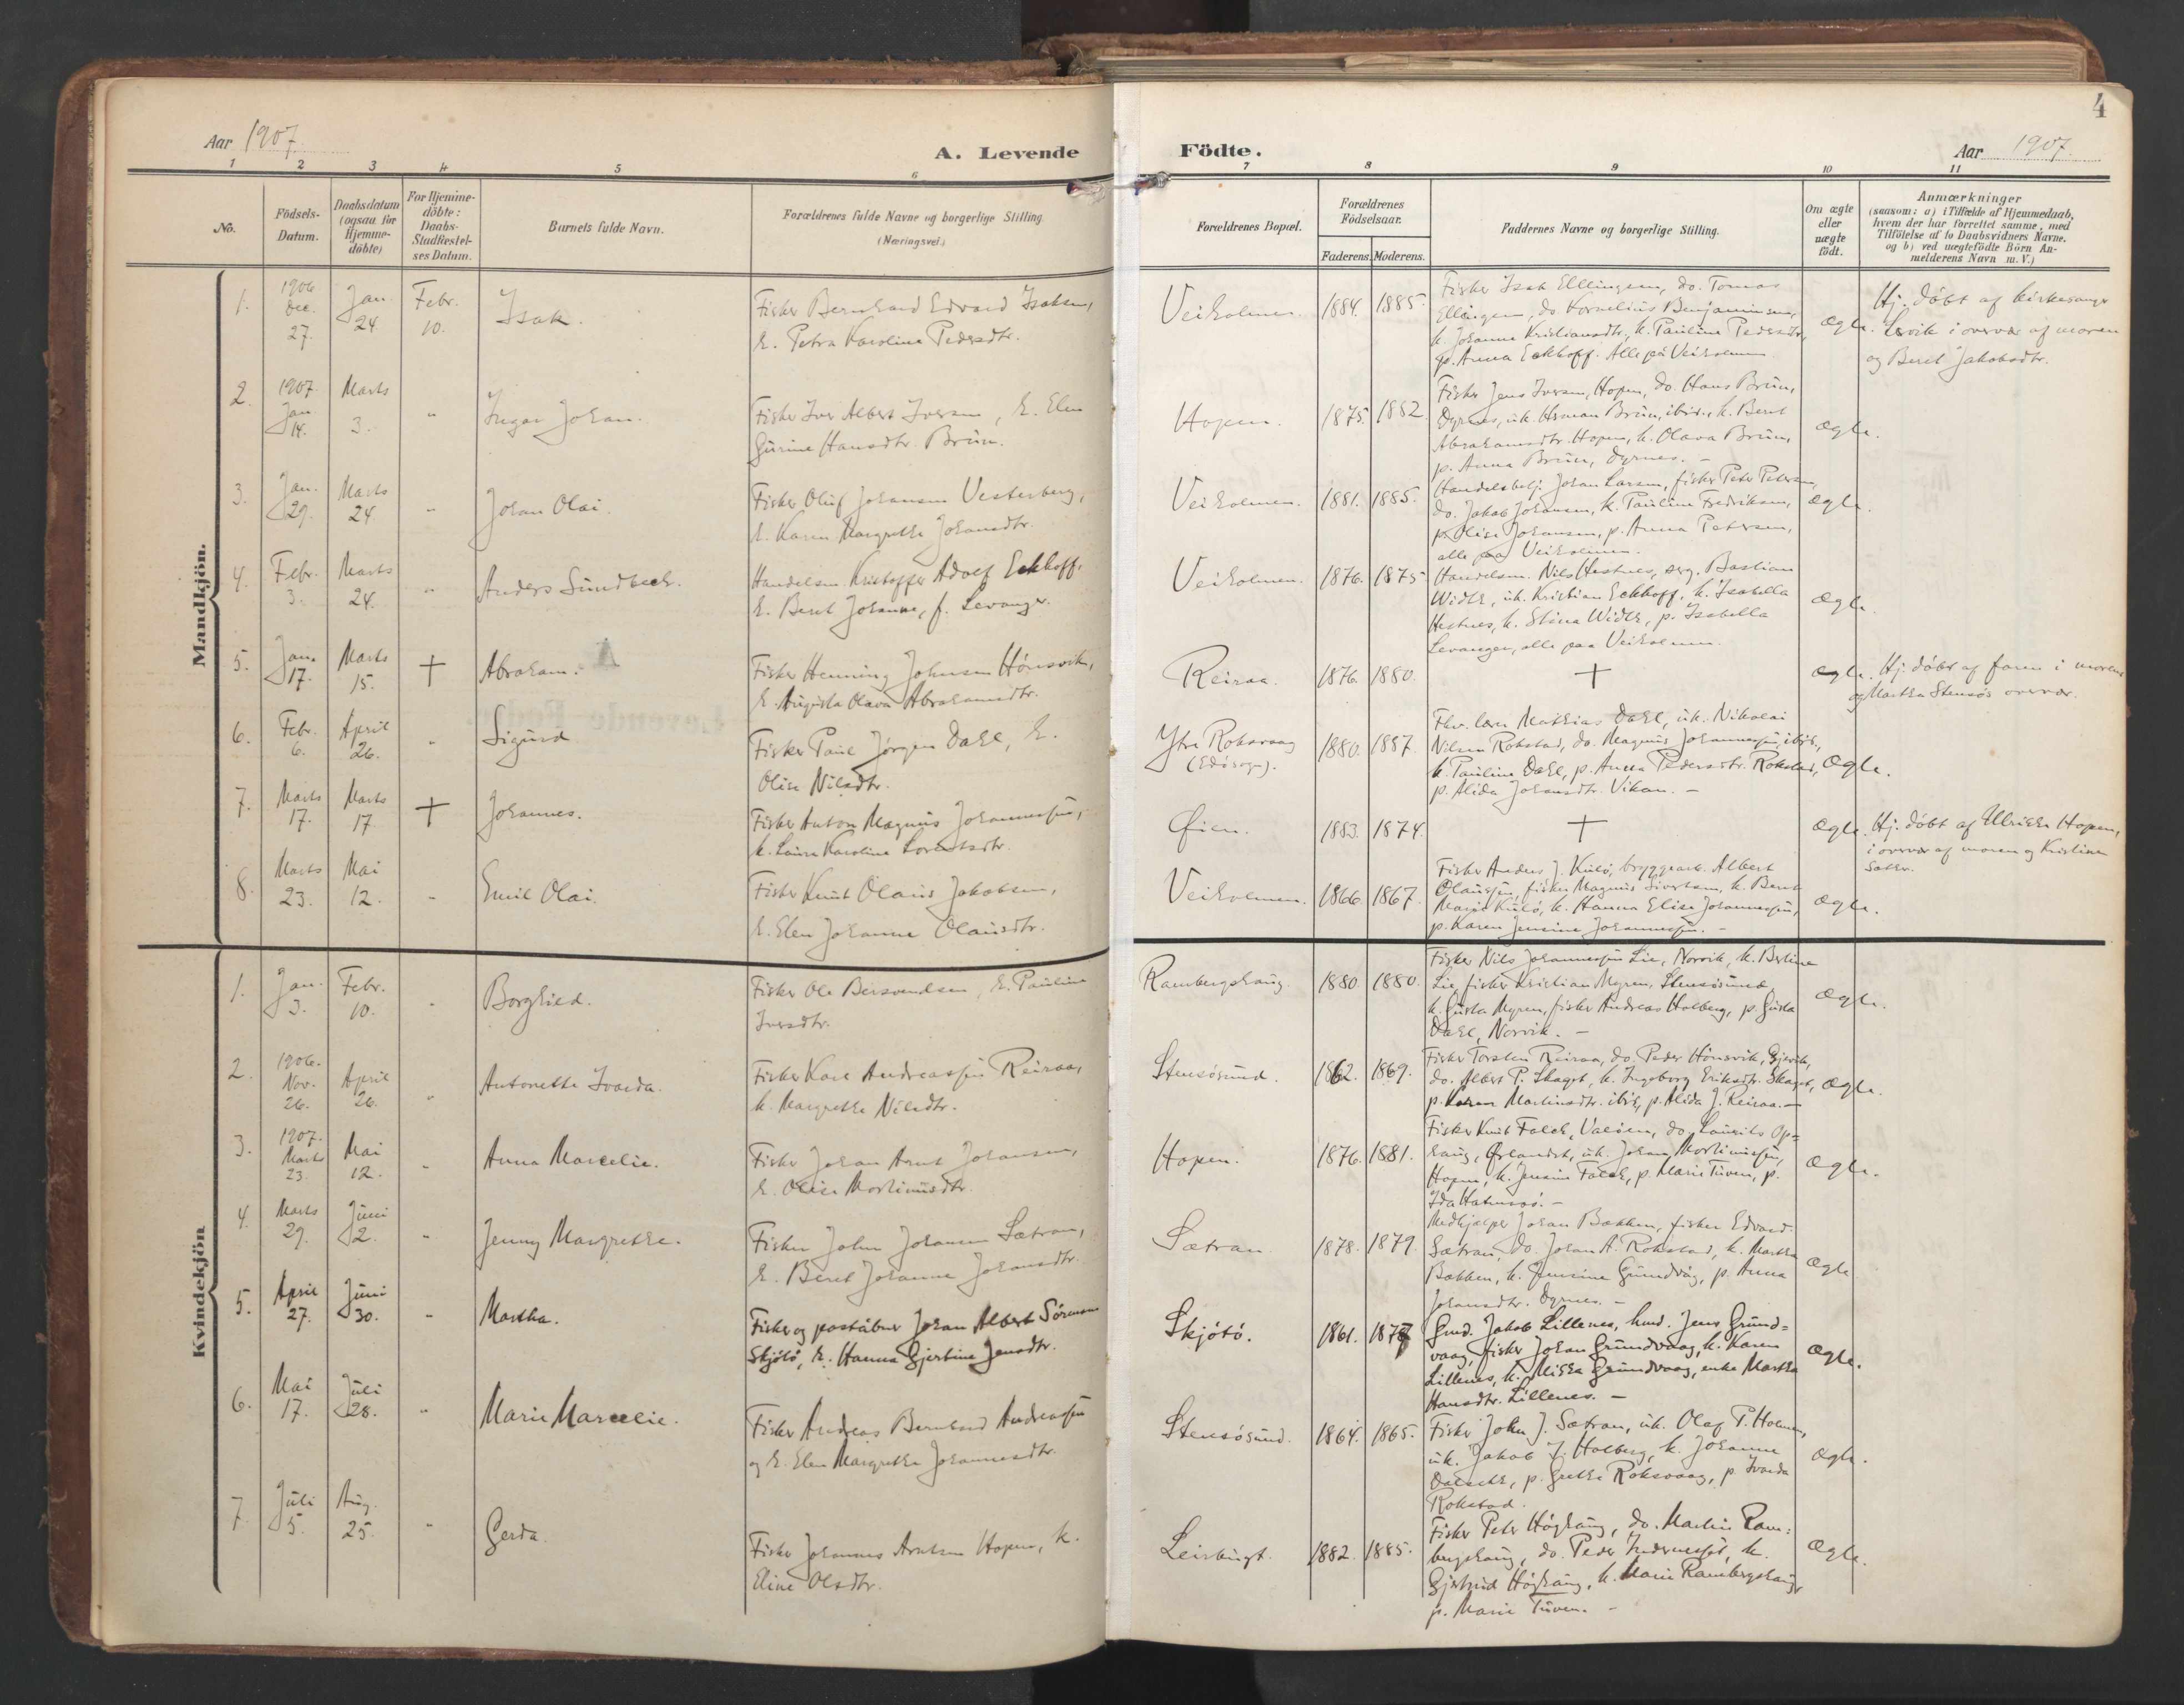 Aar 1907
A. Levende
1 2 3 4 5 6
No.
Födsels-
Datum.
Daabsdatum
(ogsaa for
Hjemme-
döbte)
For Hjemme-
döbte:
Daabs-
Stadfæstel-
ses Datum.
Barnets fulde Navn.
Forældrenes fulde Navne og borgerlige Stilling.
(Næringsvei.)
Mandkjön.
1. 1906 Dec. 27. Jan. 24 Febr. 10. Isak.
Fisker Bernhard Edvard Isaksen,
h. Petra Karoline Pedersdtr.
2. 1907. Jan. 14. Marts 3. " Ingar Johan.
Fisker Iver Albert Iversen, h. Elen
Gurine Hansdtr. Brun.
3. Jan. 29. Marts 24 " Johan Olai.
Fisker Oluf Johansen Vesterberg,
h. Karen Margrethe Johansdtr.
4. Febr. 3. Marts 24. " Anders Sundbeck.
Handelsm. Kristoffer Adolf Eckhoff.
h. Beret Johanna, f. Levanger.
5. Jan. 17. Marts 15. † Abraham.
Fisker Henning Johnsen Hönsvik,
h. Augusta Olava Abrahamsdtr.
6. Febr. 6. April 26. " Sigurd
Fisker Paul Jörgen Dahl, h.
Olise Nilsdtr.
7. Marts 17. Marts 17 † Johannes.
Fisker Anton Magnus Johannessen,
h. Laura Karoline Lorentsdtr.
8. Marts 23. Mai 12. " Emil Olai.
Fisker Knut Olaus Jakobsen,
h. Elen Johanne Olausdtr.
Kvindekjön
1. Jan. 3. Febr. 10. " Borghild.
Fisker Ole Bersvendsen, h. Pauline
Iversdtr.
2. 1906. Nov. 26. April 26. " Antonette Ivarda.
Fisker Karl Andreassen Reiraa,
h. Margrethe Nilsdtr.
3. 1907. Marts 23. Mai 12. " Anna Marcelie.
Fisker Johan Arnt Johansen,
h. Olise Mortinusdtr.
4. Marts 29. Juni 2. " Jenny Margrethe.
Fisker John Johansen Sætran,
h. Beret Johanna Johansdtr.
5. April 27. Juni 30. " Martha.
Fisker og postaabner Johan Albert Sörensen
Skjölö, h. Hanna Gjertine Jensdtr.
6. Mai 17. Juli 28. " Marie Marcelie.
Fisker Andreas Bernhard Andreassen
og h. Elen Margrethe Johannesdtr.
7. Juli 5. Aug. 25. " Gerda.
Fisker Johannes Arntsen Hopen, h.
Eline Olsdtr.
4
Födte.
Aar 1907.
7 8 9 10 11
Forældrenes Bopæl.
Forældrenes
Födselsaar.
Faderens. Moderens.
Faddernes Navne og borgerlige Stilling.
Om ægte
eller
uægte
födt.
Anmærkninger
(saasom: a) i Tilfælde af Hjemmedaab,
hvem der har forrettet samme, med
Tilföielse af to Daabsvidners Navne.
og b) ved uægtefödte Börn An-
melderens Navn m. V.)
Veiholmen. 1884. 1885.
Fisker Isak Ellingsen, do. Tomas
Ellingsen, do Kornelius Benjaminsen,
k. Johanna Kristiansdtr, k. Pauline Pedersdtr,
p. Anna Eckhoff. Alle på Veiholmen
Ægte.
Hj. döbt af kirkesanger
Lervik i overvær af moren
og Beret Jakobsdtr.
Hopen. 1875. 1882.
Fisker Jens Iversen, Hopen, do. Hans Brun,
Dyrnes, uk. Herman Brun, ibid., k. Beret
Abrahamsdtr. Hopen, k. Olava Brun,
p. Anna Brun, Dyrnes. –
Ægte.
Veiholmen. 1881. 1885.
Handelsbetj. Johan Larsen, fisker Peter Petersen,
do. Jakob Johansen, k. Pauline Fredriksen,
p. Olise Johansen, p. Anna Petersen,
alle paa Veiholmen.
Ægte.
Veiholmen. 1876. 1875
Handelsm. Nils Hestnes, Bastian
Width, uk. Kristian Eckhoff, k. Isabella
Hestnes, k. Stina Width, p. Isabella
Levanger, alle paa Veiholmen.
Ægte.
Reiraa. 1876. 1880. †
Ægte.
Hj. döbt af faren i morens
og Martha Stensös overvær.
Ytre Roksvaag
(Edösogn). 1880. 1887.
Fhv. lærer Mathias Dahl, uk. Nikolai
Nilsen Rokstad, do. Magnus Johannessen, ibid.,
k. Pauline Dahl, p. Anna Pedersdtr. Rokstad,
p. Alida Johansdtr. Vikan. –
Ægte.
Öien. 1883. 1874. †
Ægte.
Hj. döbt af Ulrikke Hopen,
i overvær af moren og Kristine
Veiholmen. 1866. 1867.
Fisker Anders J. Kulö, bryggearb. Albert
Olaussen, fisker Magnus Sivertsen, k. Beret
Marie Kulö, k. Hanna Elise Johannessen,
p. Karen Jensine Johannessen. –
Ægte.
Rambergshaug. 1880. 1880.
Fisker Nils Johannessen Lie, Norvik, k. Berline
Lie, fisker Kristian Myren, Stensösund,
k. Gurta Myren, fisker Andreas Holberg, p. Gurta
Dahl, Norvik. –
Ægte.
Stensösund. 1862. 1869.
Fisker Torsten Reiraa, do. Peder Hönsvik, Gjevik,
do. Albert P. Skaget, k. Ingeborg Eriksdtr. Skaget,
p. Karen Martinsdtr. ibid, p. Alida J. Reiraa. –
Ægte.
Hopen. 1876. 1881.
Fisker Knut Falck, Valöen, do. Laurits Op=
haug, Örlandet, uk. Johan Mortinussen,
Hopen, k. Jensine Falck, p. Marie Tuven, p.
Ida –
Ægte.
Sætran 1878. 1879.
Medhjælper Johan Bakken, fisker Edvard
Sætran, do. Johan A. Rokstad, k. Martha
Bakken, k. Jensine Grundvåg, p. Anna
Johansdtr. Dyrnes. –
Ægte
Skjölö. 1861. 1877
Gmd. Jakob Lillenes, hmd. Jens Grund=
vaag, fisker Johan Grundvaag, k. Karen
Lillenes, k. Mikka Grundvaag, enke Martha
Hansdtr. Lillenes. –
Ægte.
Stensösund. 1864. 1865.
Fisker John J. Sætran, uk. Olaf P. Holmen,
uk. Jakob J. Holberg, k. Johanna
p. Grethe Roksvaag, p. Ivarda
Rokstad.
Ægte.
Leirbugt. 1882. 1885.
Fisker Peter Höghaug, do. Martin Ram=
bergshaug, do. Peder k.
Gjertrud Höghaug, k. Marie Rambergshaug,
p. Marie Tuven. –
Ægte.